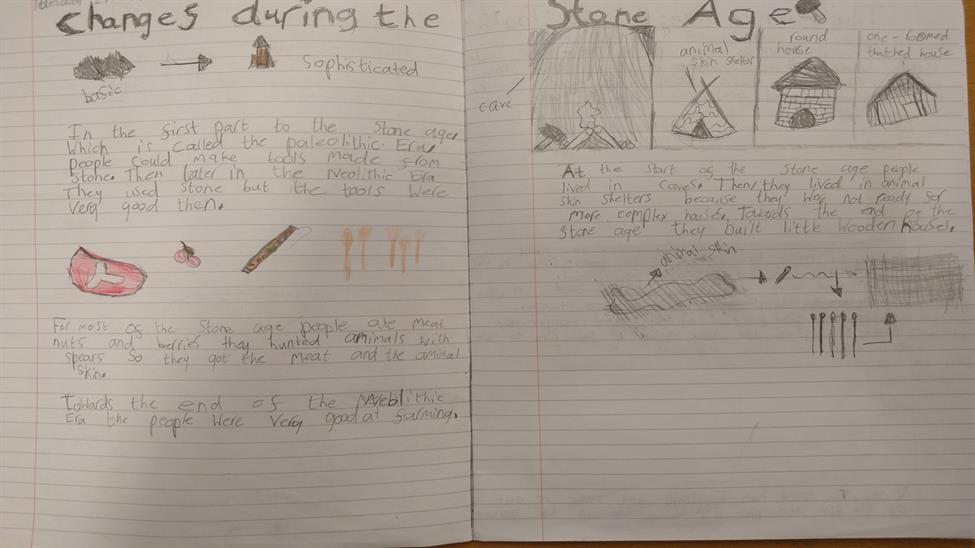 Changes during the Stone Age
basic
Sophisticated
In the first part to the Stone age,
Which is called the paleolithic Era,
people could make tools made from
Stone. Then later in the Neolithic Era
They used stone but the tools were
very good then.
For most of the Stone age people ate meat
nuts and berries they hunted animals with
spears so they got the meat and the animal
skin.
Towards the end of the Neolithic
Era the people were very good at farming.
cave
animal
skin shelter
round
house
one-roomed
thatched house
At the start of the Stone age people
lived in caves. Then they lived in animal
skin shelters because they were not ready for
more complex houses. Towards the end of the
Stone age they built little wooden houses.
animal skin